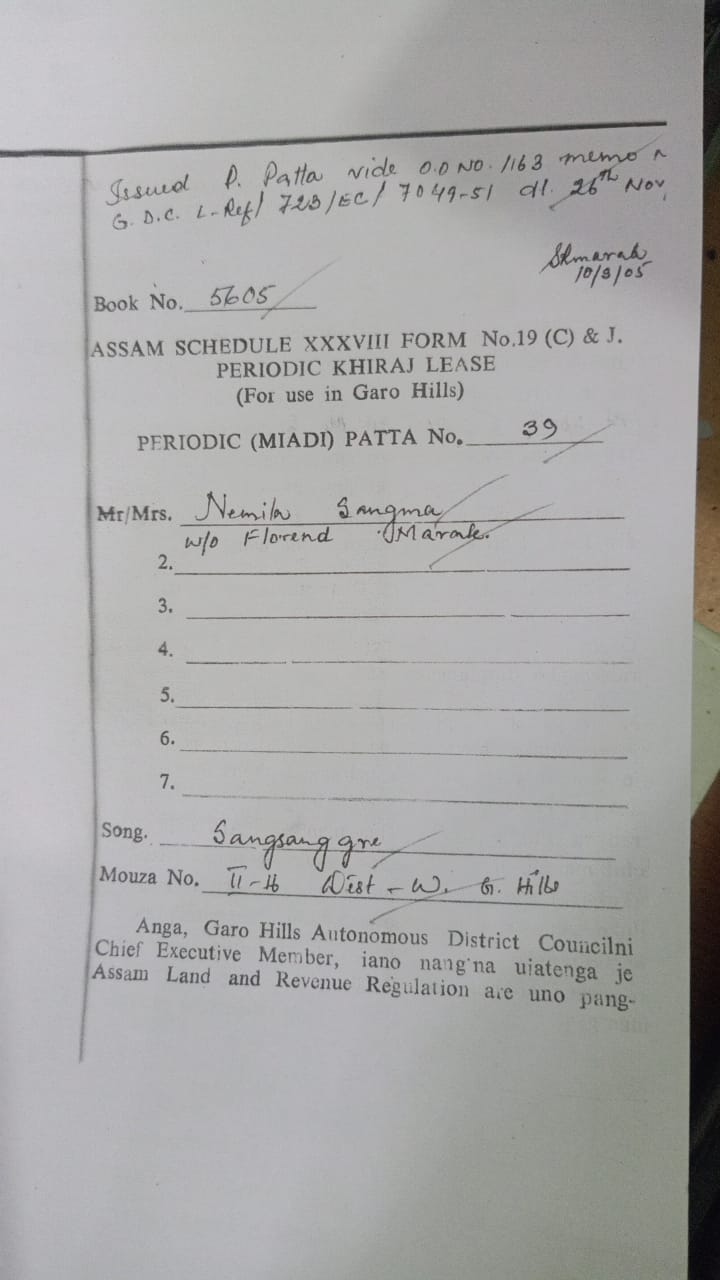 Issued P. Patta vide O.O NO. 1163 memo
G.D.C. L-Ref/ 723/EC/ 7049-51 dt. 26th Nov,
10/3/05
Book No. 5605
ASSAM SCHEDULE XXXVIII FORM No.19 (C) & J.
PERIODIC KHIRAJ LEASE
(For use in Garo Hills)
PERIODIC (MIADI) PATTA No. 39
Mr/Mrs. Nemila Sangma
w/o Florend Marak.
2.
3.
4.
5.
6.
7.
Song. Sangsanggre
Mouza No. II-16 Dist - W. G. Hills
Anga, Garo Hills Autonomous District Councilni
Chief Executive Member, iano nang'na uiatenga je
Assam Land and Revenue Regulation are uno pang-